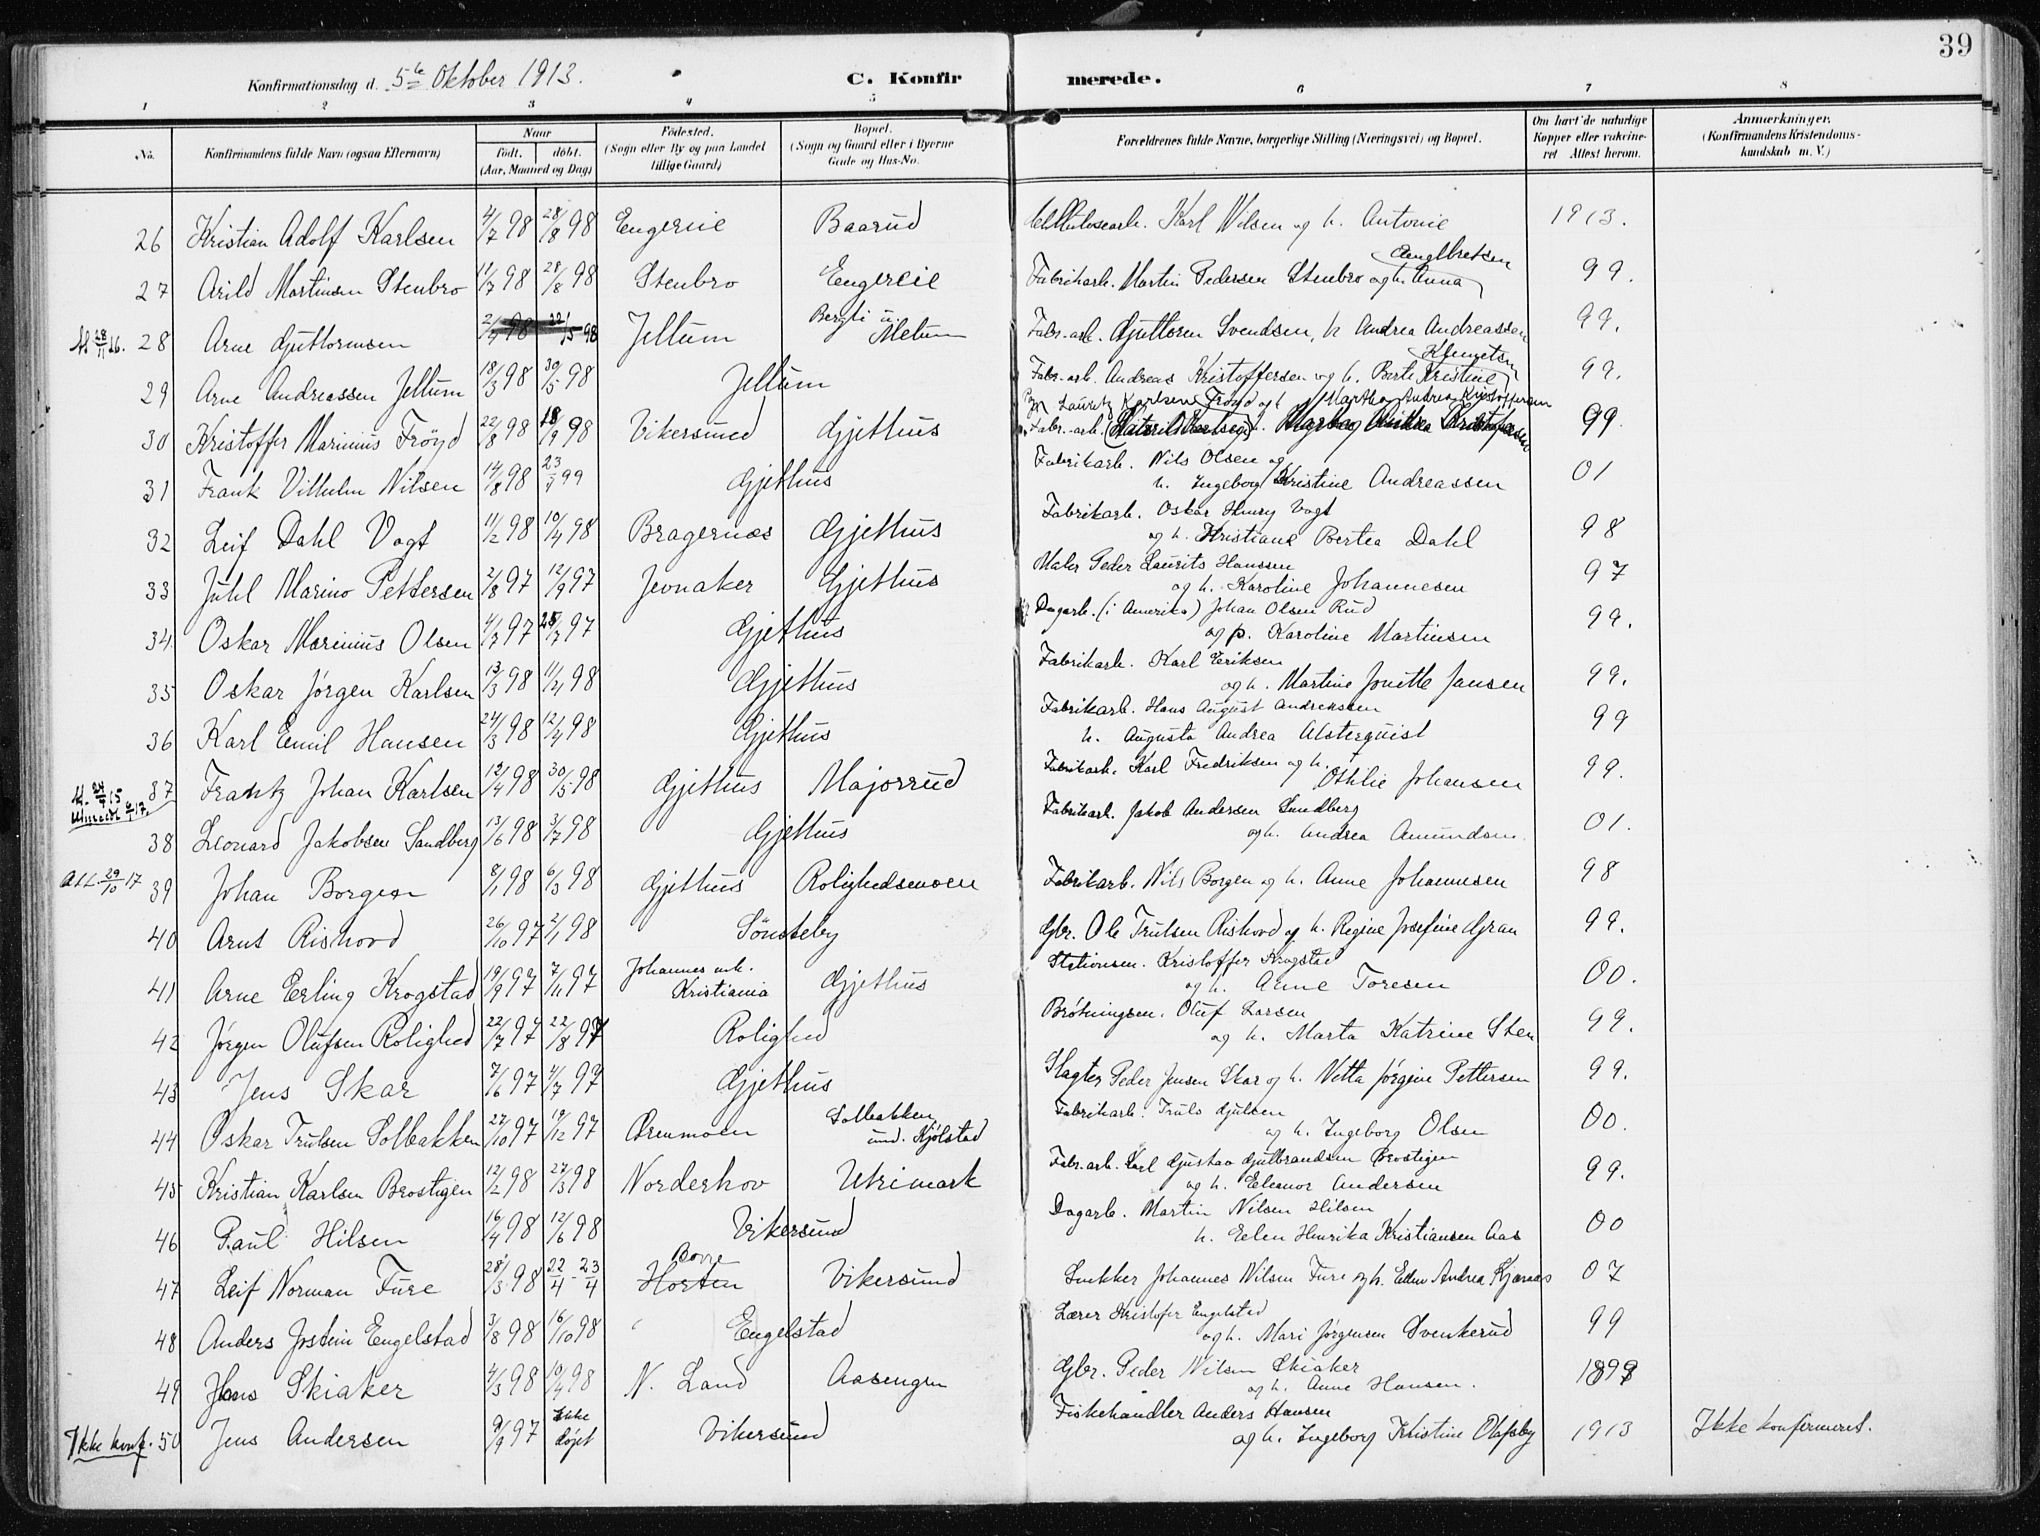 39
Konfirmationsdag d. 5te Oktober 1913. C. Konfirmerede.
1 2 3 4 5 6 7 8
No. Konfirmandens fulde Navn (ogsaa Efternavn) Naar født. døbt. (Aar, Maaned og Dag) Fødested. (Sogn eller By og paa Landet tillige Gaard) Bopæl. (Sogn og Gaard eller i Byerne Gade og Hus-No. Forældrenes fulde Navne, borgerlige Stilling (Næringsvei) og Bopæl. Om havt de naturlige Kopper eller vakcineret Attest herom. Anmærkninger. (Konfirmandens Kristendomskundskab m. V.)
26 Kristian Adolf Karlsen 4/7 98 28/8 98 Engerlie Baarud Cellulosearb. Karl Nilsen og h. Antonie 1913.
Engebretsen
27 Arild Martinsen Stenbro 11/7 98 28/8 98 Stenbro Engerlie Fabrikarb. Martin Pedersen Stenbro og h. Anna 99.
28 Arne Guttormsen 98 22/5 98 Jellum Bergli u. Melum Fabr.-arb. Guttorm Svendsen, h. Andrea Andreassen 99.
Klemetsen
29 Arne Andreassen Jellum 18/3 98 30/5 98 Jellum Fabr.-arb. Andreas Kristoffersen og h. Berte Kristine 99.
Lauritz Karlsen Frøyd og h. Martha Andrea Kristoffersen
30 Kristoffer Marinius Frøyd 22/8 98 18/9 98 Vikersund Gjethus Fabr.-arb. 99
31 Frank Vilhelm Nilsen 14/8 98 23/4 99 Gjethus Fabrikarb. Nils Olsen og h. Ingeborg Kristine Andreassen 01
32 Leif Dahl Vogt 11/2 98 10/4 98 Bragernæs Gjethus Fabrikarb. Oskar Henry Vogt og h. Kristiane Bertea Dahl 98
33 Juhl Marino Pettersen 2/8 97 12/9 97 Jevnaker Gjethus Maler Peder Laurits Hanssen og h. Karoline Johannesen 97
34. Oskar Marinius Olsen 97 97 Gjethus Dagarb. (i Amerika) Johan Olsen Rud og p. Karoline Martinsen 99.
35 Oskar Jørgen Karlsen 13/3 98 11/4 98 Gjethus Fabrikarb. Karl Eriksen og h. Martine Jonette Jansen 99.
36 Karl Emil Hansen 24/3 98 12/4 98 Gjethus Fabrikarb. Hans August Andreassen h. Augusta Andrea Alsterquist 99
37 Frantz Johan Karlsen 12/4 98 30/5 98 Gjethus Majorrud Fabrikarb. Karl Fredriksen og h. Othilie Johansen 99.
38 Leonard Jakobsen Sandberg 13/6 98 3/7 98 Gjethus Fabrikarb. Jakob Andersen Sandberg og h. Andrea Amundsen. 01.
Att. 29/10 17 39 Johan Borgen 8/1 98 6/3 98 Gjethus Rolighedsmoen Fabrikarb. Nils Borgen og h. Anne Johannesen 98
40 Arnt Rishovd 26/10 97 2/1 98 Sönsteby Gbr. Ole Trulsen Rishovd og h. Regine Josefine Gran 99.
41 Arne Erling Krogstad 19/9 97 7/11 97 Johannes mk. Kristiania Gjethus Stationsm. Kristoffer Krogstad og h. Anne Toresen 00.
42 Jørgen Olufsen Rolighed 22/7 97 22/8 97 Rolighed Brøtningsm. Oluf Larsen og h. Marta Katrine Sten 99.
43 Jens Skar 7/6 97 4/7 97 Gjethus Slagter Peder Jensen Skar og h. Netta Jørgine Pettersen 99.
44 Oskar Trulsen Solbakken 27/10 97 19/12 97 Ørenmoen Solbakken und. Kjölstad Fabrikarb. Truls Gulsen og h. Ingeborg Olsen 00.
45 Kristian Karlsen Brostigen 12/2 98 27/3 98 Norderhov Utvimark Fabr.-arb. Karl Gustav Gulbrandsen Brostigen og h. Eleanor Andersen 99.
46 Paul Hilsen 16/4 98 12/6 98 Vikersund Dagarb. Martin Nilsen Hilsen h. Elen Henrika Kristiansen Aas 00
47 Leif Norman Fure 28/3 98 22/4 - 23/4 Borre Horten Vikersund Snikker Johannes Nilsen Fure og h. Ellen Andrea Kjærnaas 07
48 Anders Jostein Engelstad 3/8 98 16/10 98 Engelstad Lærer Kristofer Engelstad og h. Mari Jørgensen Svenkerud 99
49 Hans Skiaker 4/3 98 10/4 98 N. Land Aasengen Gbr. Peder Nilsen Skiaker og h. Anne Hansen. 1899
Ikke konf. 50 Jens Andersen 9/9 97 Ikke døjet Vikersund Fiskehandler Anders Hansen og h. Ingeborg Kristine Olafsby 1913 Ikke konfirmeret.